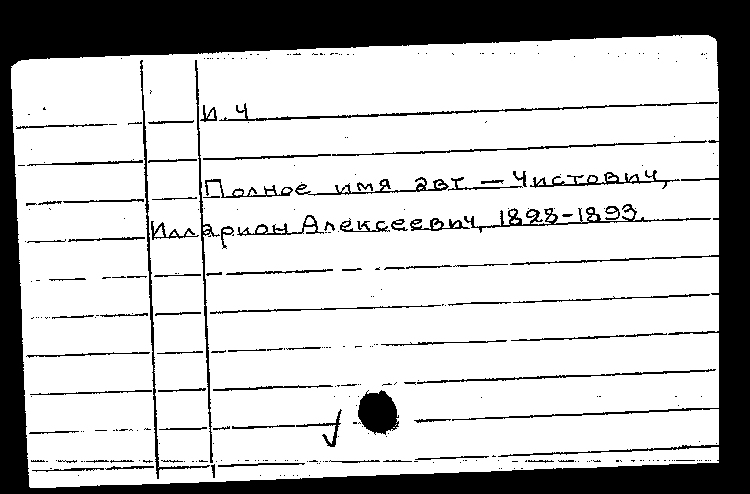 И. Ч
Полное имя авт — Чистович,
Илларион Алексеевич, 1828-1893.